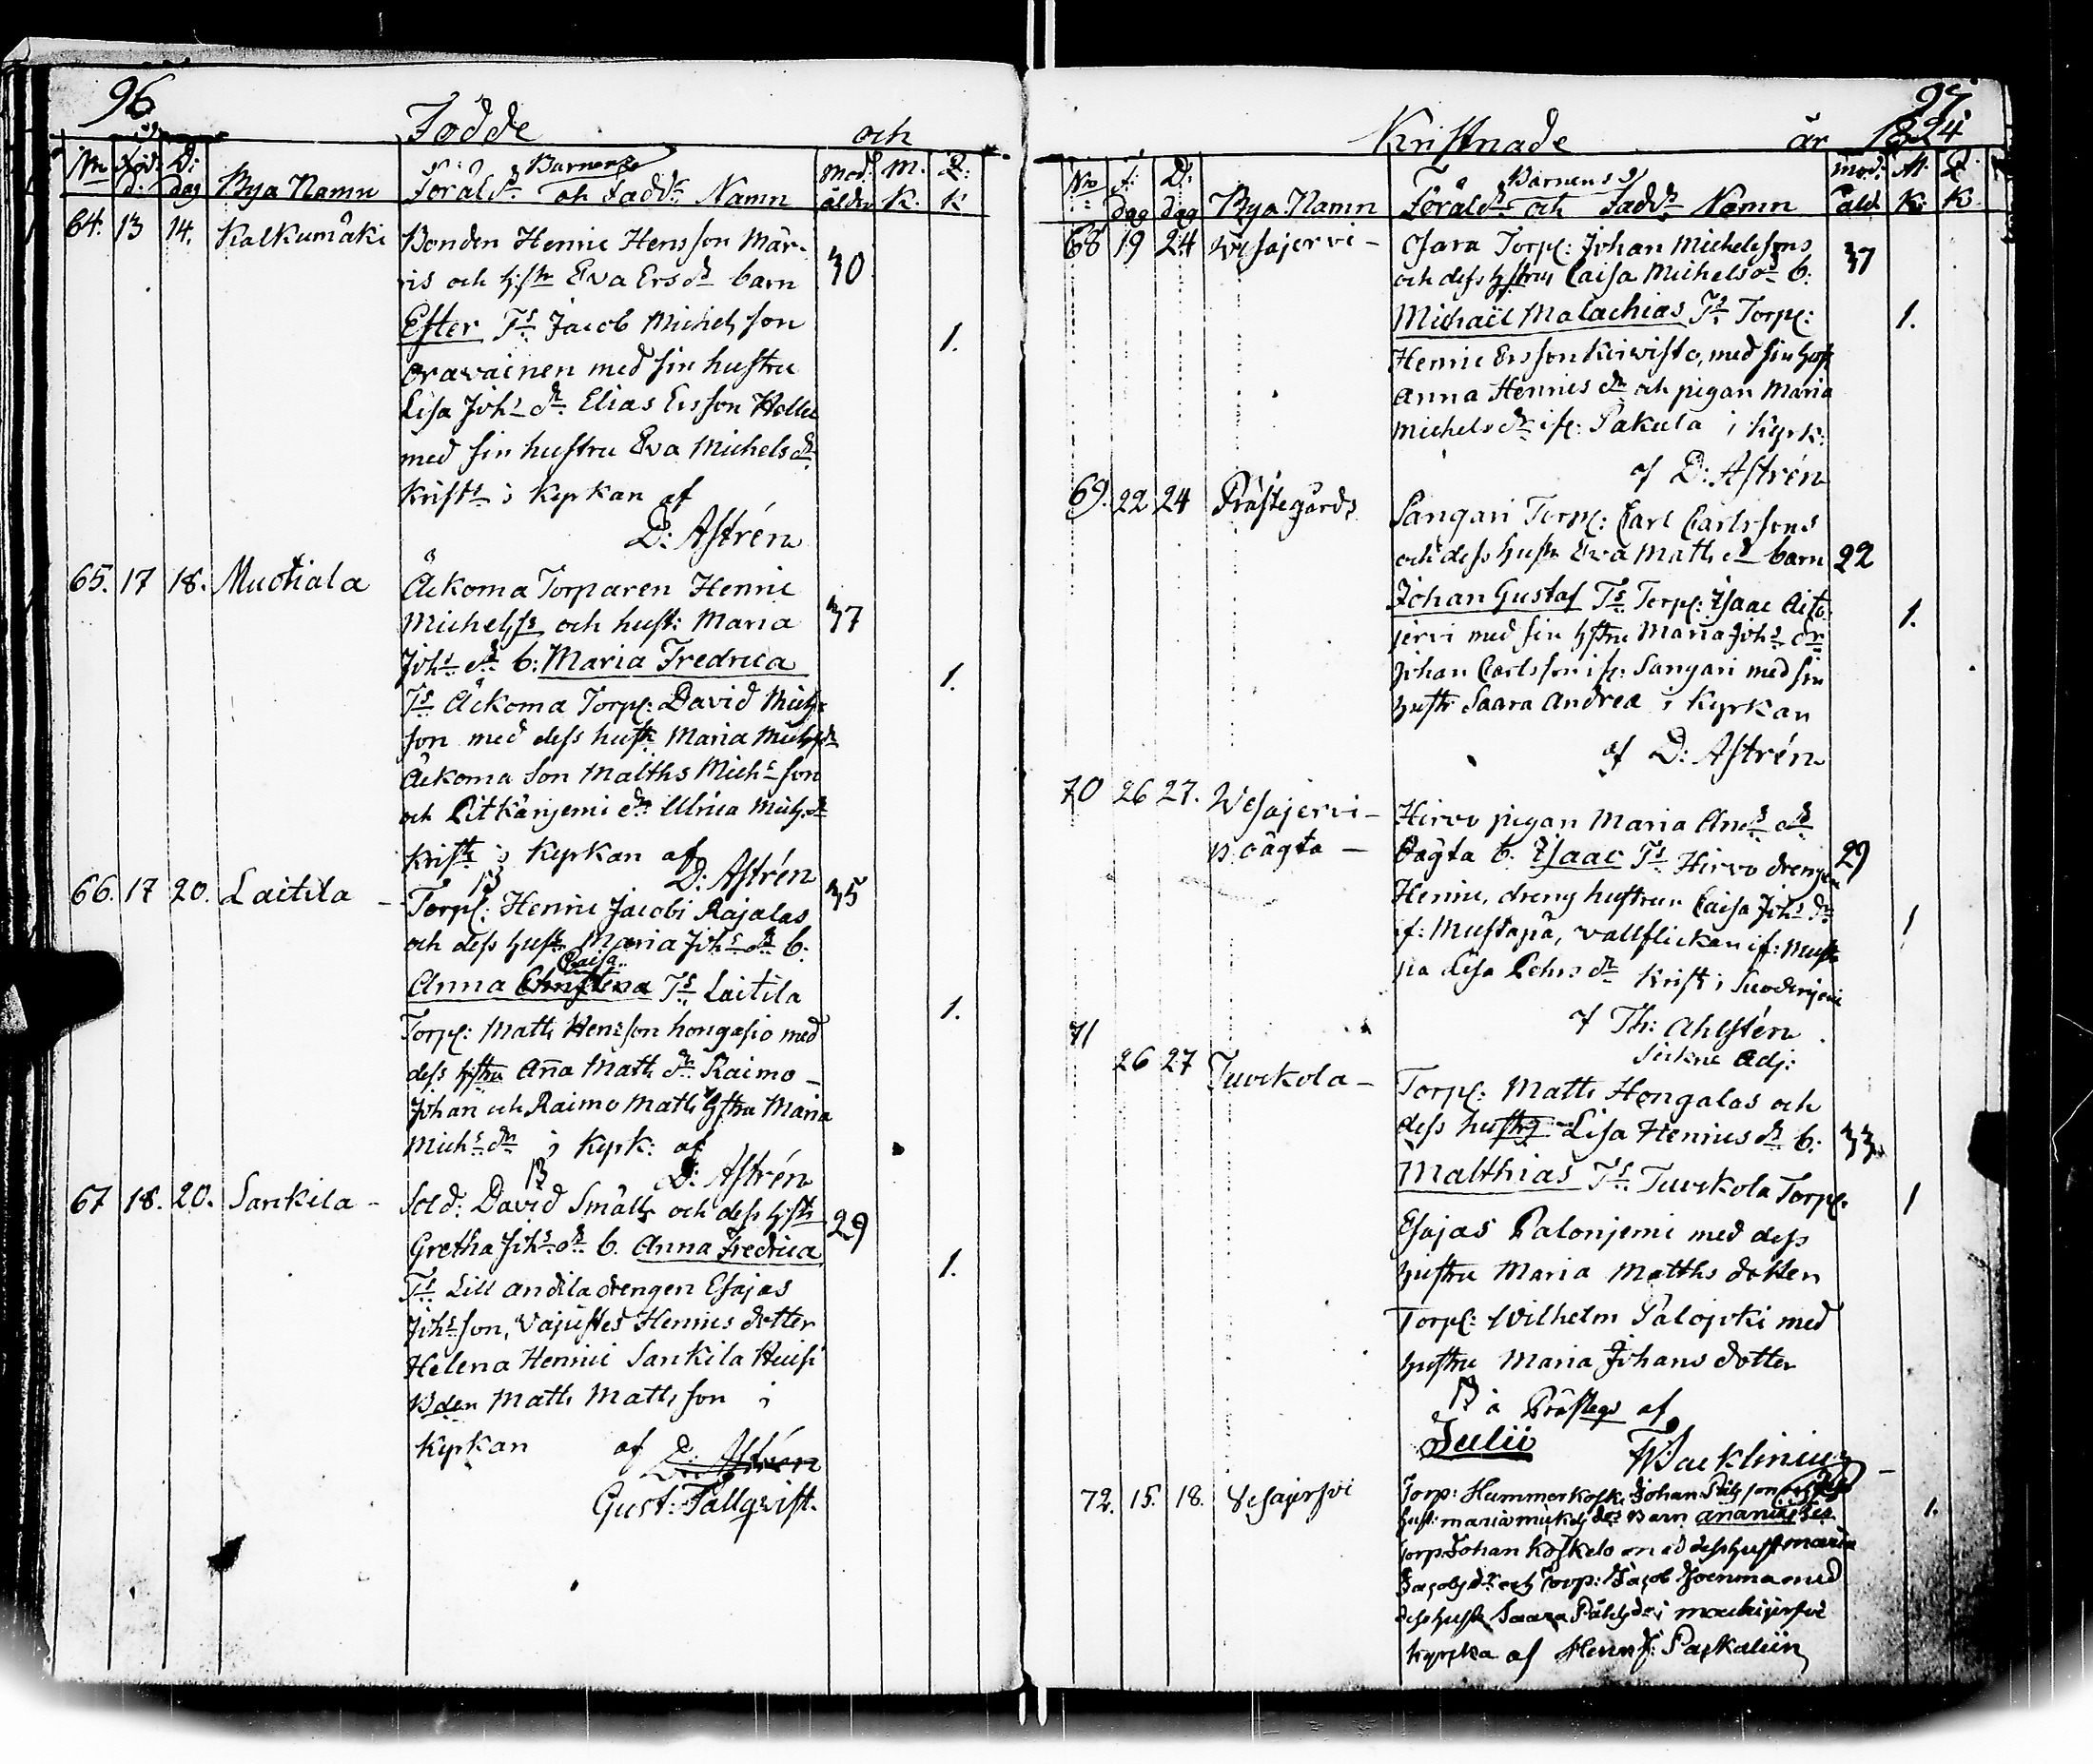 96
Födde och
No Föd: d. D: dag Bya Namn Föräld:r Barnens och Fadd:r Namn Mod: ålder M. K. Q: K
64. 13 14. Kalkumäki Bonden Henric Hensson Mär-
ris och h:str Eva Ers dr barn 30
Ester Ts. Jacob Michelsson
Oravainen med sin hustru 1.
Lisa Johs dr. Elias Ersson
med sin hustru Eva Michels dr
Kristn i Kyrkan af
D: Astrén
65. 17 18. Muotiala Åckoma Torparen Henric
Michelss och hust: Maria 37
Johs dr b: Maria Fredrica
Ts. Åckoma Torp: David Michs 1.
son med dess hustr Maria Michs dr
Åckoma Son Matths Michs son
och Pitkänjemi dr Ulrica Michs dr
Kristn i Kyrkan af
D: Astrén
66. 17 20. Laitila - Torp: Henric Jacobs Rajalas 35
och dess hustr Maria Johs dr b:
Caisa
Anna Christina Ts. Laitila
Torp: Matts Hensson hongasio med 1.
dess hstru Aña Matts dr Raimo -
Johan och Raimo Matts hstru Maria
Michs dr i Kyrk: af
D: Astrén
67 18. 20. Sankila - Sold: David Smält och dess hstr
Gretha Johs dr b. Anna Fredrica 29
Ts. Lill andila drengen Esajas 1.
Johs son, Vajustes Henrics dotter
Helena Henric Sankila
Bden Matts Matts son i
Kyrkan af D: Astrén
Gust: Tallqvist.
97.
Kristnade år 1824
No F: dag D: dag Bya Namn Föräld:r Barnens och Fadd:r Namn Mod: åld. M. K: Q: K
68 19 24 Wesajervi - Osara Torp: Johan Michelssons
och dess hstrus Caisa Michels dr b: 37
Michaël Malachias Ts. Torp: 1.
Henric Ersson Kiivisto, med sin hust
Anna Henrics dr och pigan Maria
Michels dr if: Pakula i Kyrk:
af D: Astrén
69. 22 24 Prästegårds Sangari Torp: Carl Carlssons
och dess hustr Eva Matts dr barn 22
Johan Gustaf Ts. Torp: Isaac Aito-
jervi med sin hstru Maria Johs dr 1.
Johan Carlsson if: Sangari med sin
hustr Saara Andrea i Kyrkan
af D: Astrén
70 26 27. Wesajervi - Hirvo pigan Maria Ands dr
Oägta - Oägta b. Isaac Ts. Hirvo drengen 29
Henric, dreng hustrun Caisa Johs dr
if: Mustapä, vallflickan if: Musta 1
pä Lisa Pehrs dr Krist i Suodenjemi
af Th: Ahlstén
Adj:
71 26 27 Tuvikola - Torp: Matts Hongalas och
dess hustrs Lisa Henrics dr b: 33
Matthias Ts. Tuvikola Torp: 1
Esajas Palonjemi med dess
hustru Maria Matths dotter
Torp: Wilhelm Palojoki med
hustru Maria Johans dotter
i Prästegd af
Julii
72. 15. 18. Vesajerfvi Torp: Hummerkoski Johan
hust: maria mickels dr Barn Ananias 1.
torp Johan Koskelo med dess hust maria
Jacobs dr och Torp: Jacob med
dess hust Saara i mouhijerfvi
kyrka af Henr: J: Paskalin